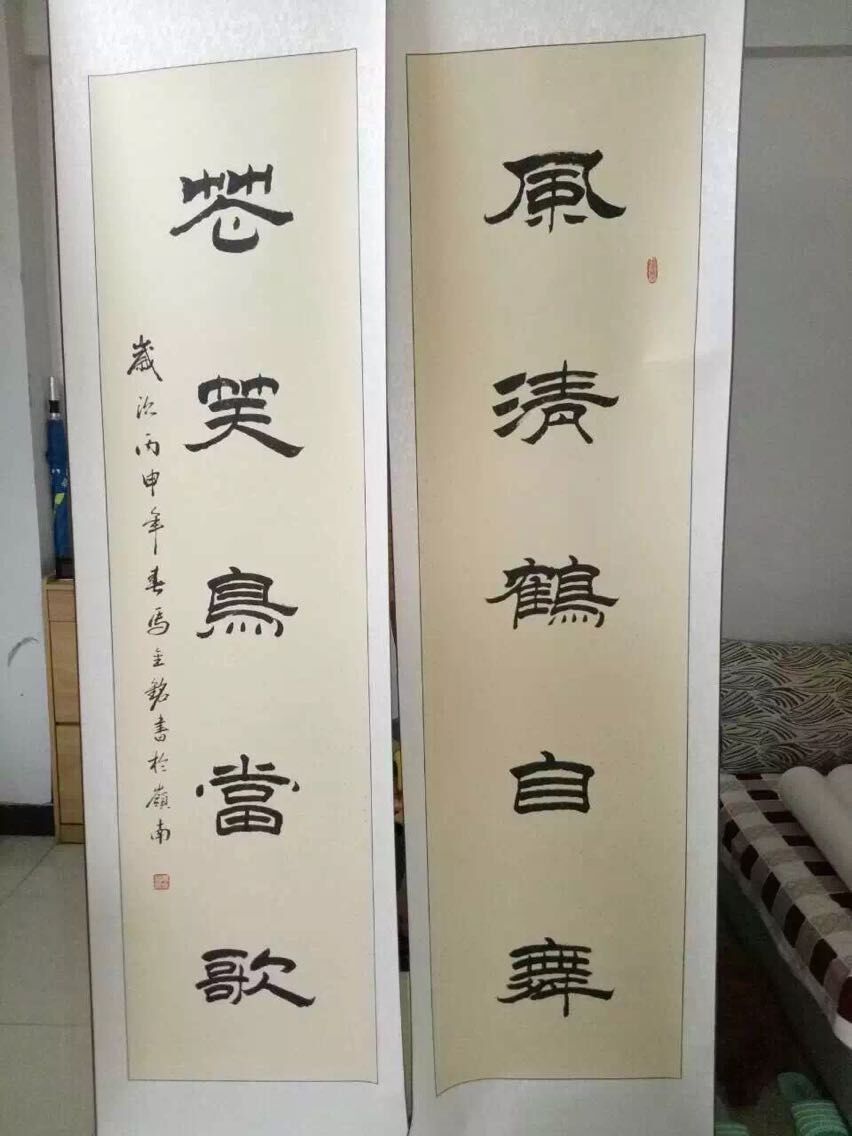 風清鶴自舞
花笑鳥當歌
歲次丙申年春馬金銘書於嶺南